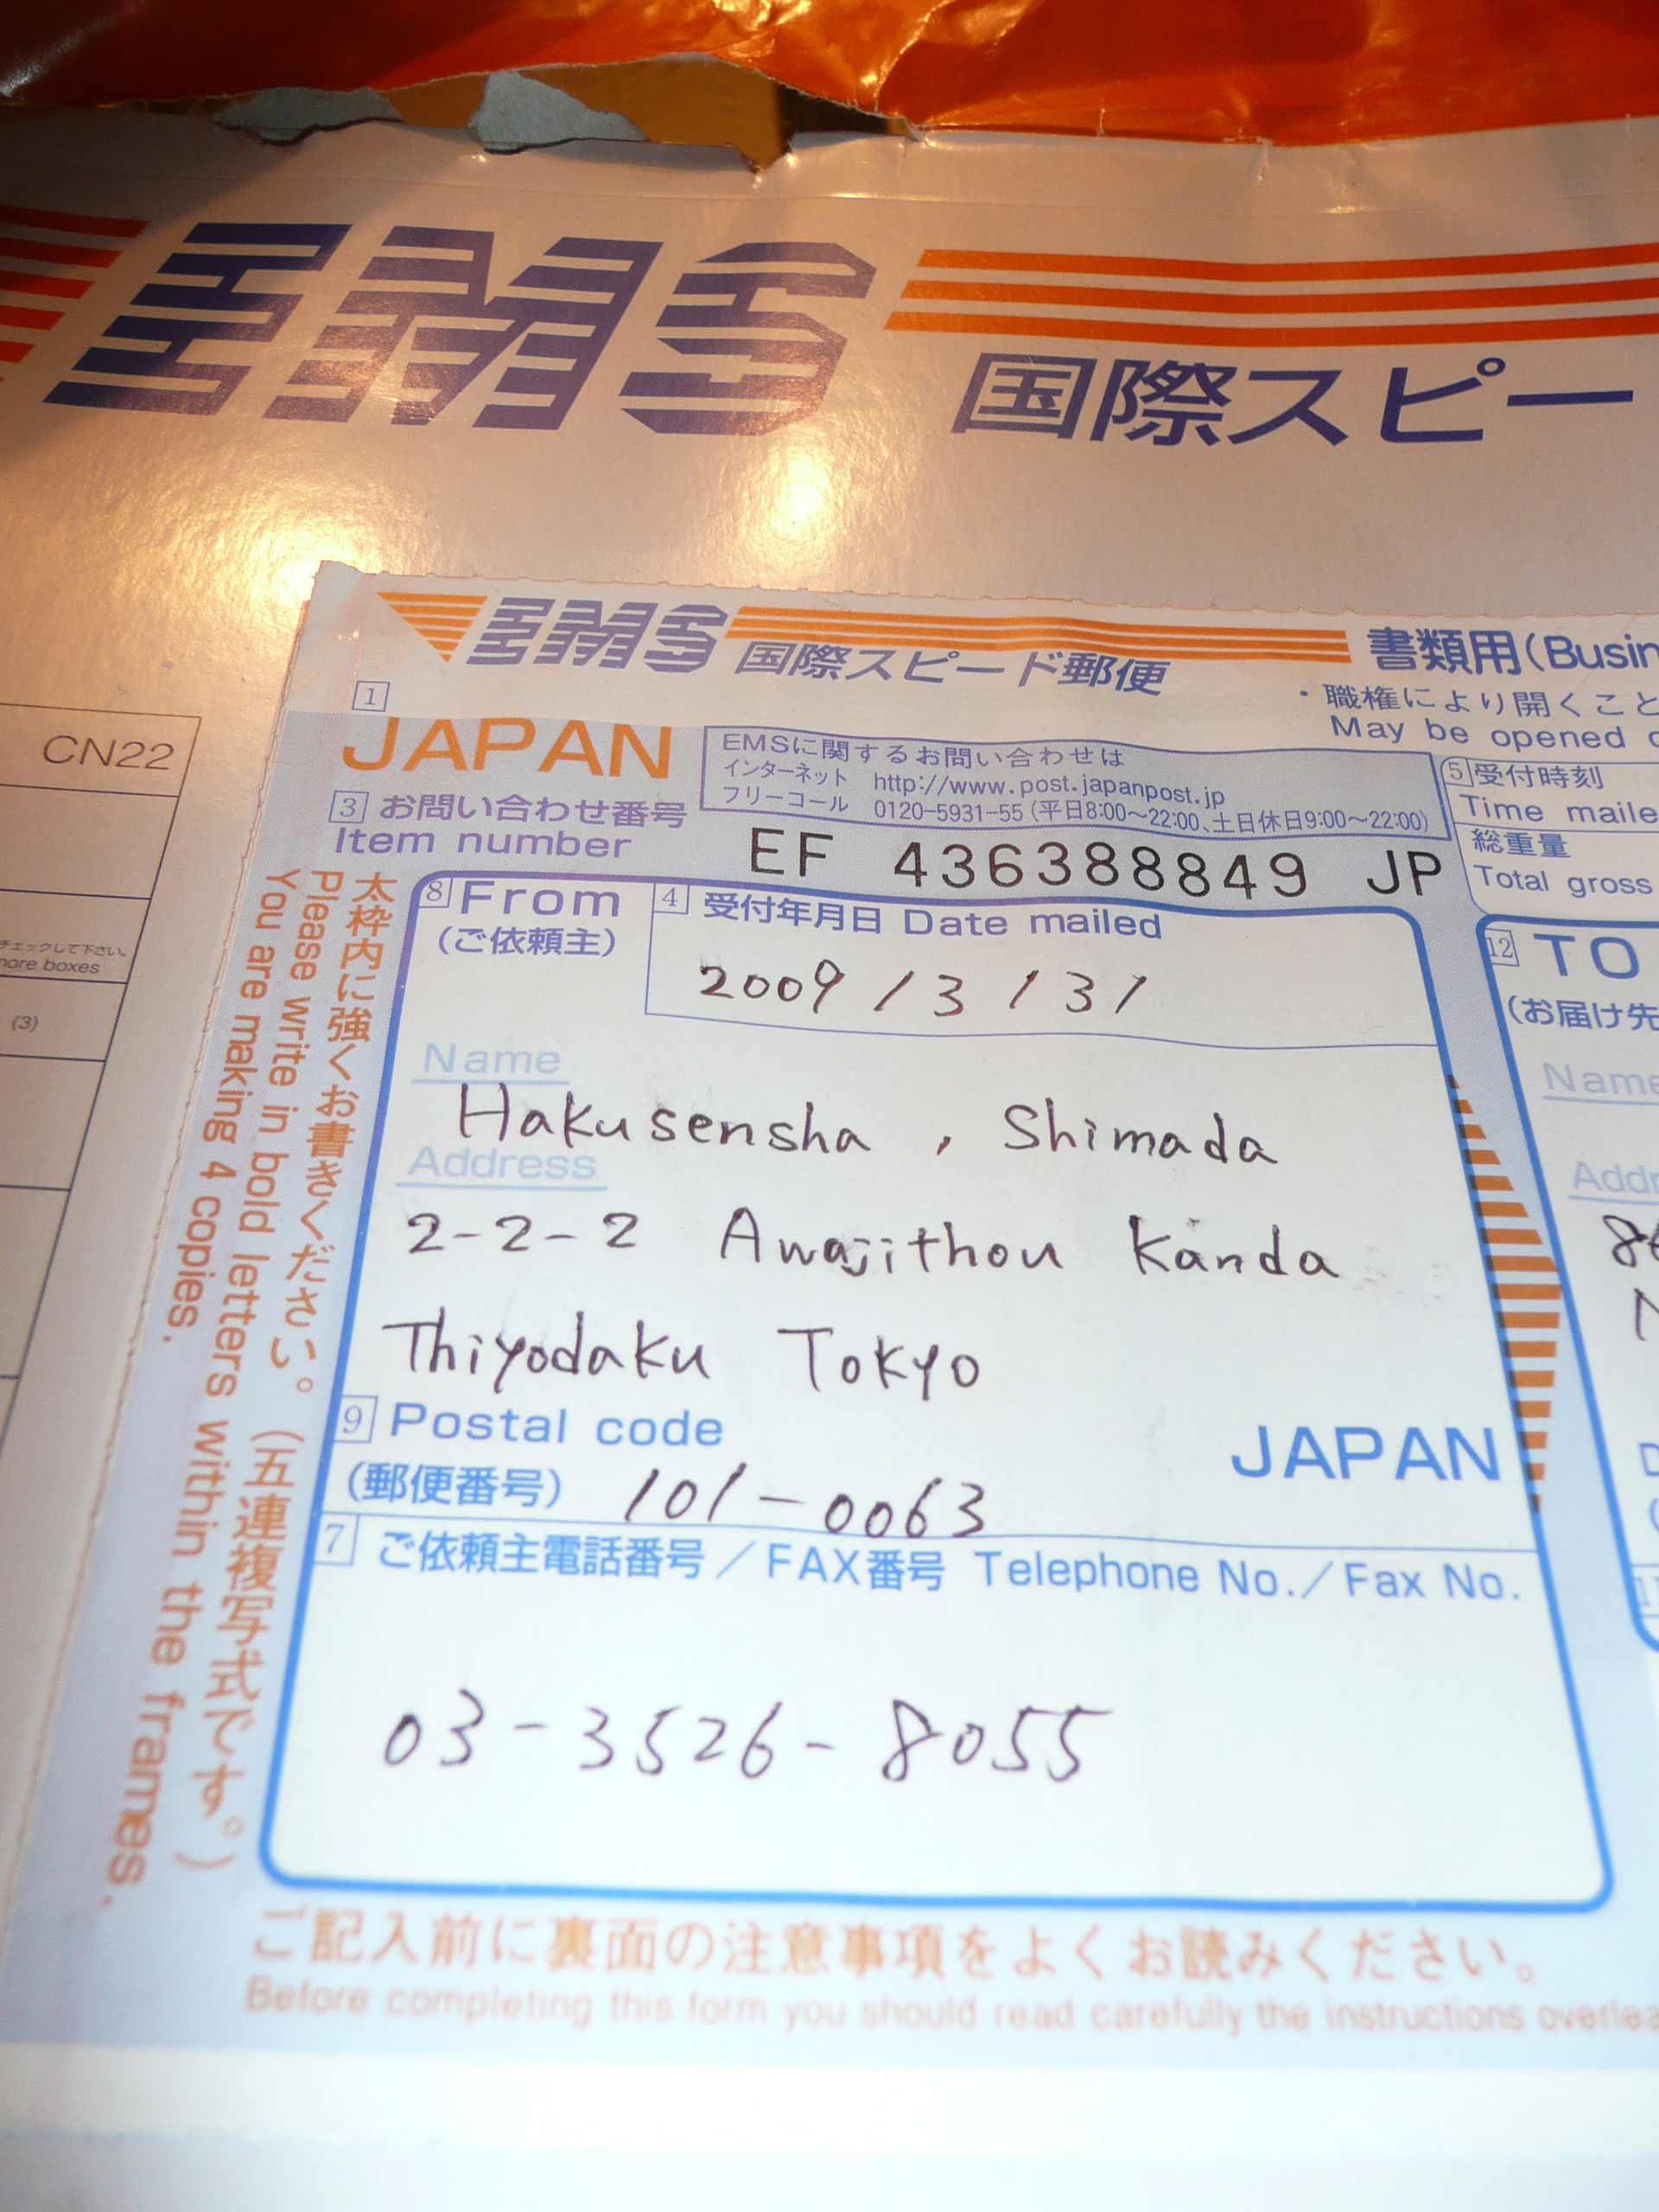 EMS
国際スピー
EMS 国際スピード郵便
書類用(Busin
・職権により開くこと
May be opened
1
JAPAN
EMSに関するお問い合わせは
インターネット http://www.post.japanpost.jp
フリーコール 0120-5931-55(平日8:00〜22:00、土日休日9:00〜22:00)
5 受付時刻
Time maile
総重量
Total gross
3 お問い合わせ番号
Item number
EF 436388849 JP
8 From
(ご依頼主)
4 受付年月日 Date mailed
2009/3/31
Name
Hakusensha, Shimada
Address
2-2-2 Awajithou Kanda
Thiyodaku Tokyo
9 Postal code
(郵便番号) 101-0063
JAPAN
7 ご依頼主電話番号/FAX番号 Telephone No./Fax No.
03-3526-8055
12 TO
(お届け先
Name
Addr
太枠内に強くお書きください。(五連複写式です。)
Please write in bold letters within the frames.
You are making 4 copies.
ご記入前に裏面の注意事項をよくお読みください。
Before completing this form you should read carefully the instructions overlea
CN22
チェックして下さい。
more boxes
(3)